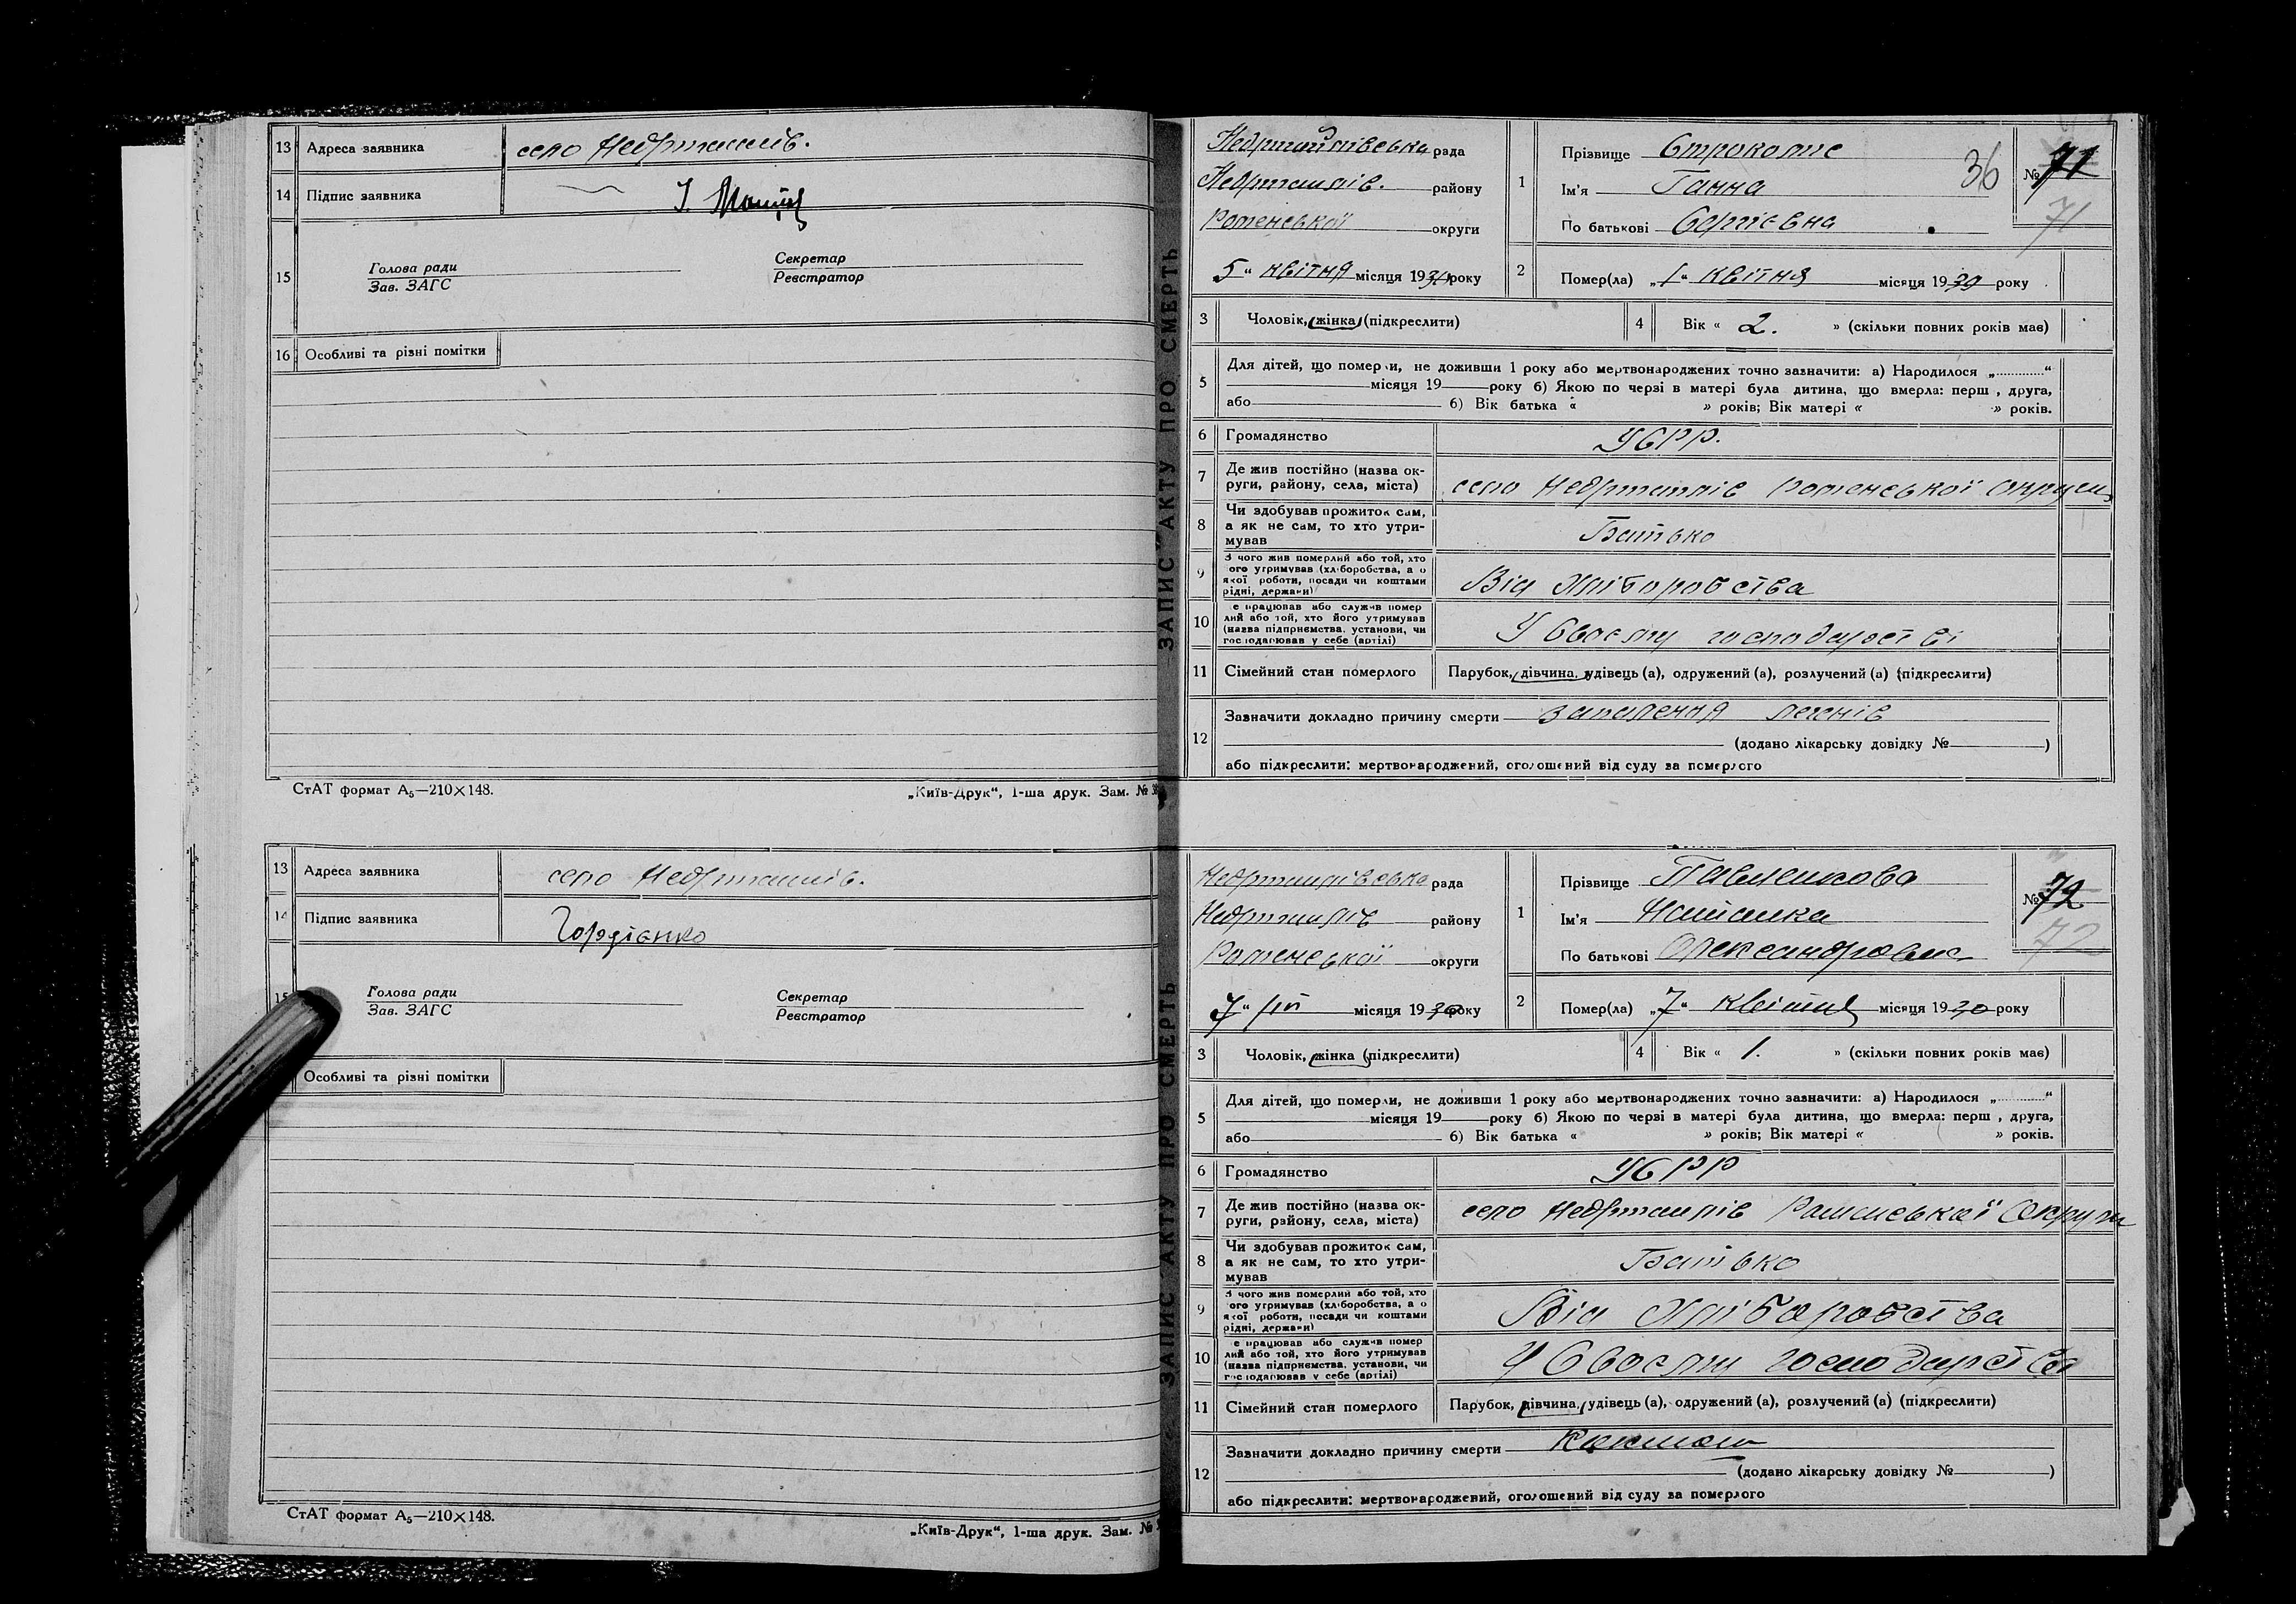 13 Адреса заявника село Недригайлів.
14 Підпис заявника
15 Голова ради
Зав. ЗАГС
Секретар
Реєстратор
16 Особливі та різні помітки
СтАТ формат А₅—210×148.
„Київ-Друк“, 1-ша друк. Зам. №
13 Адреса заявника село Недригайлів.
14 Підпис заявника Гордієнко
15 Голова ради
Зав. ЗАГС
Секретар
Реєстратор
Особливі та різні помітки
СтАТ формат А₅—210×148.
„Київ-Друк“, 1-ша друк. Зам. №
ЗАПИС АКТУ ПРО СМЕРТЬ
Недригайлівська рада
Недригайлів. району
Роменської округи
5 “ квітня місяця 1930 року
1 Прізвище
Ім'я Ганна
По батькові Сергієвна
36
№ 71
71
2 Помер(ла) „1“ квітня місяця 1930 року
3 Чоловік, жінка (підкреслити)
4 Вік « 2. » (скільки повних років має)
5 Для дітей, що померли, не доживши 1 року або мертвонароджених точно зазначити: а) Народилося „............“
місяця 19 року б) Якою по черзі в матері була дитина, що вмерла: перш , друга,
або б) Вік батька « » років; Вік матері « » років.
6 Громадянство УСРР.
7 Де жив постійно (назва ок-
руги, району, села, міста) село Недригайлів Роменської округи
8 Чи здобував прожиток сам,
а як не сам, то хто утри-
мував Батько
9 З чого жив померлий або той, хто
ого утримував (хліборобства, а о
якої роботи, посади чи коштами
рідні, держави) Від Хліборобства
10 е працював або служив помер
лий або той, хто його утримував
(назва підприємства, установи, чи
господарював у себе (артілі) У Своєму господарстві
11 Сімейний стан померлого Парубок, дівчина, удівець (а), одружений (а), розлучений (а) (підкреслити)
12 Зазначити докладно причину смерті запалення легенів
(додано лікарську довідку № )
або підкреслити: мертвонароджений, оголошений від суду за померлого
ЗАПИС АКТУ ПРО СМЕРТЬ
Недригайлівська рада
Недригайлів району
Роменської округи
7 “ місяця 1930 року
1 Прізвище Павленкова
Ім'я Наталка
По батькові Олександровна
№ 72
72
2 Помер(ла) „7“ квітня місяця 1930 року
3 Чоловік, жінка (підкреслити)
4 Вік « 1. » (скільки повних років має)
5 Для дітей, що померли, не доживши 1 року або мертвонароджених точно зазначити: а) Народилося „............“
місяця 19 року б) Якою по черзі в матері була дитина, що вмерла: перш , друга,
або б) Вік батька « » років; Вік матері « » років.
6 Громадянство УСРР
7 Де жив постійно (назва ок-
руги, району, села, міста) село Недригайлів Роменської Округи
8 Чи здобував прожиток сам,
а як не сам, то хто утри-
мував Батько
9 З чого жив померлий або той, хто
ого утримував (хліборобства, а о
якої роботи, посади чи коштами
рідні, держави) Від Хліборобства
10 е працював або служив помер
лий або той, хто його утримував
(назва підприємства, установи, чи
господарював у себе (артілі) У Своєму господарстві
11 Сімейний стан померлого Парубок, дівчина, удівець (а), одружений (а), розлучений (а) (підкреслити)
12 Зазначити докладно причину смерті
(додано лікарську довідку № )
або підкреслити: мертвонароджений, оголошений від суду за померлого